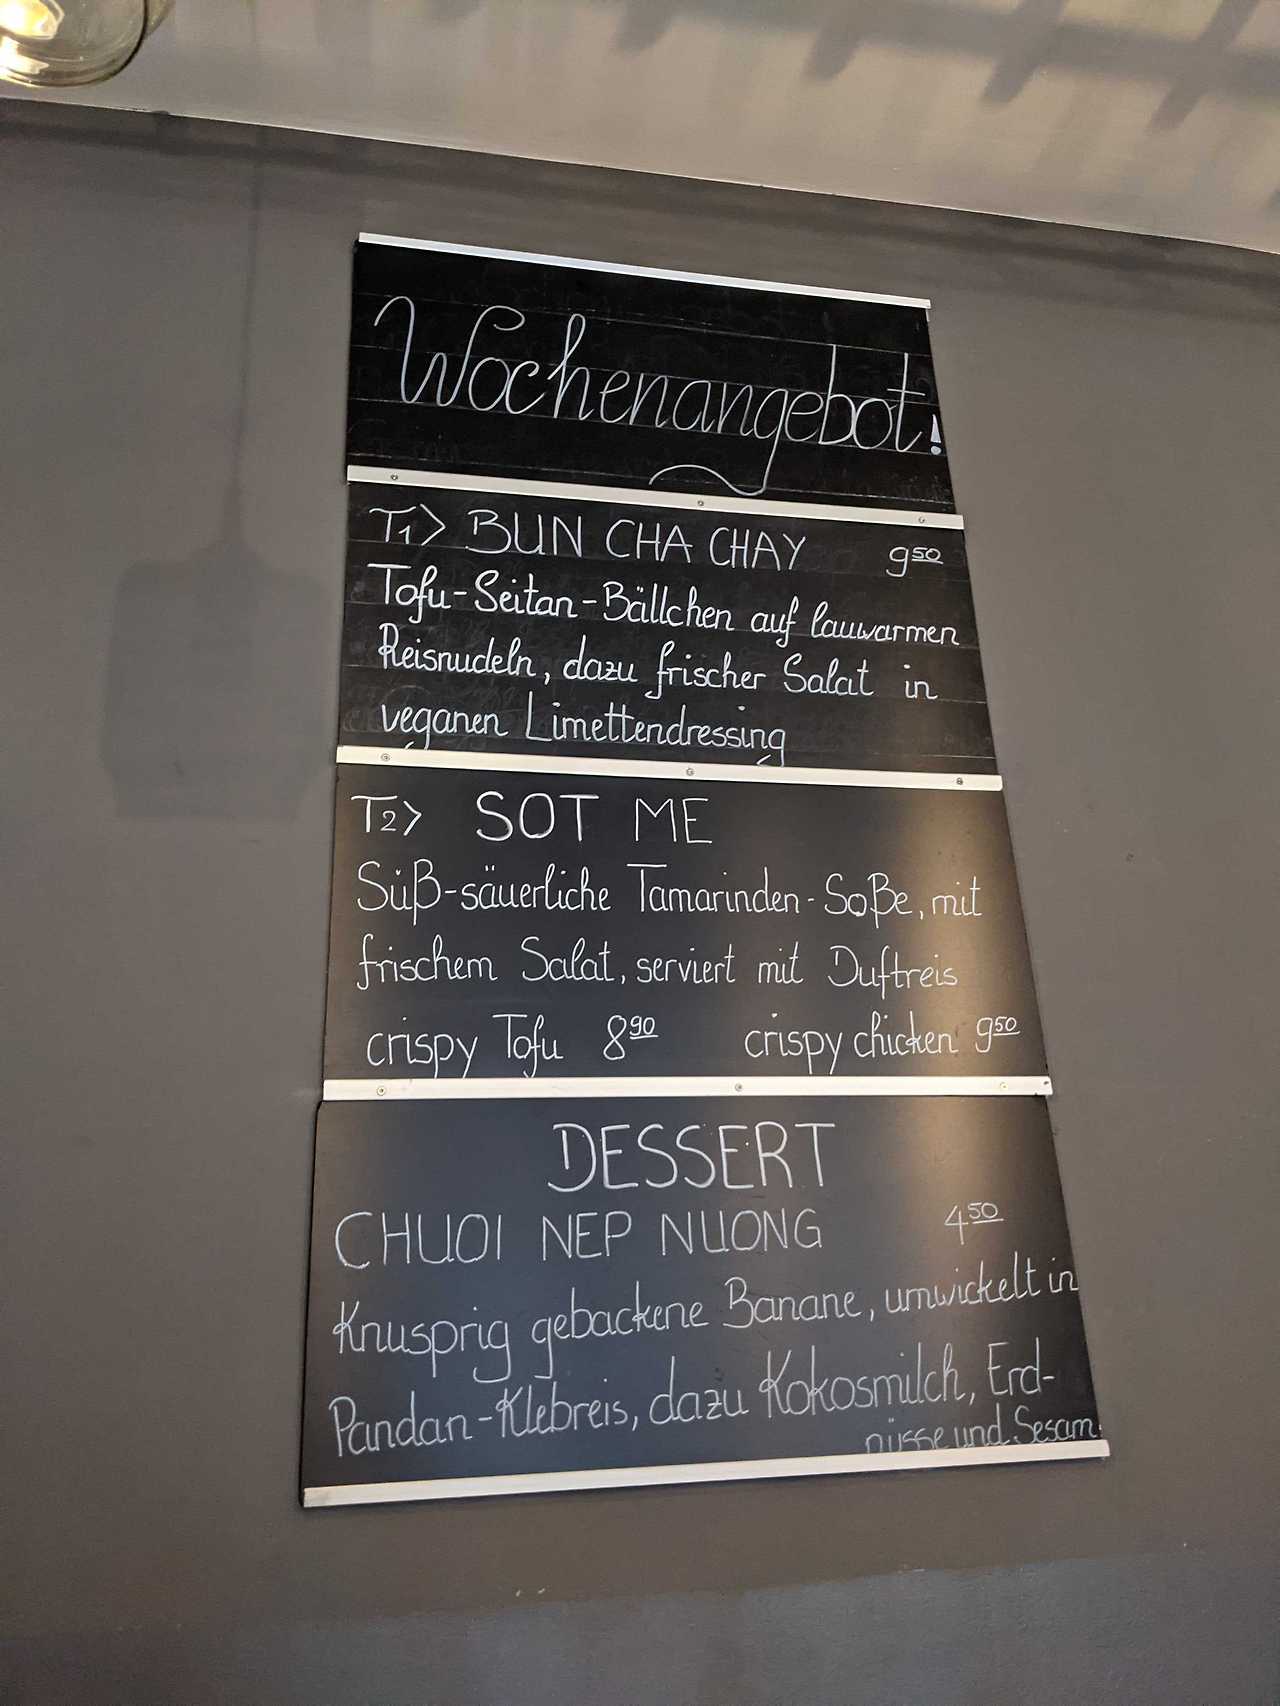 Wochenangebot!
T1> BUN CHA CHAY 950
Tofu-Seitan-Bällchen auf lauwarmen
Reisnudeln, dazu frischer Salat in
veganen Limettendressing
T2> SOT ME
Süß-säuerliche Tamarinden-Soße, mit
frischem Salat, serviert mit Duftreis
crispy Tofu 890 crispy chicken 950
DESSERT
CHUOI NEP NUONG 450
Knusprig gebackene Banane, umwickelt in
Pandan-Klebreis, dazu Kokosmilch, Erd-
nüsse und Sesam